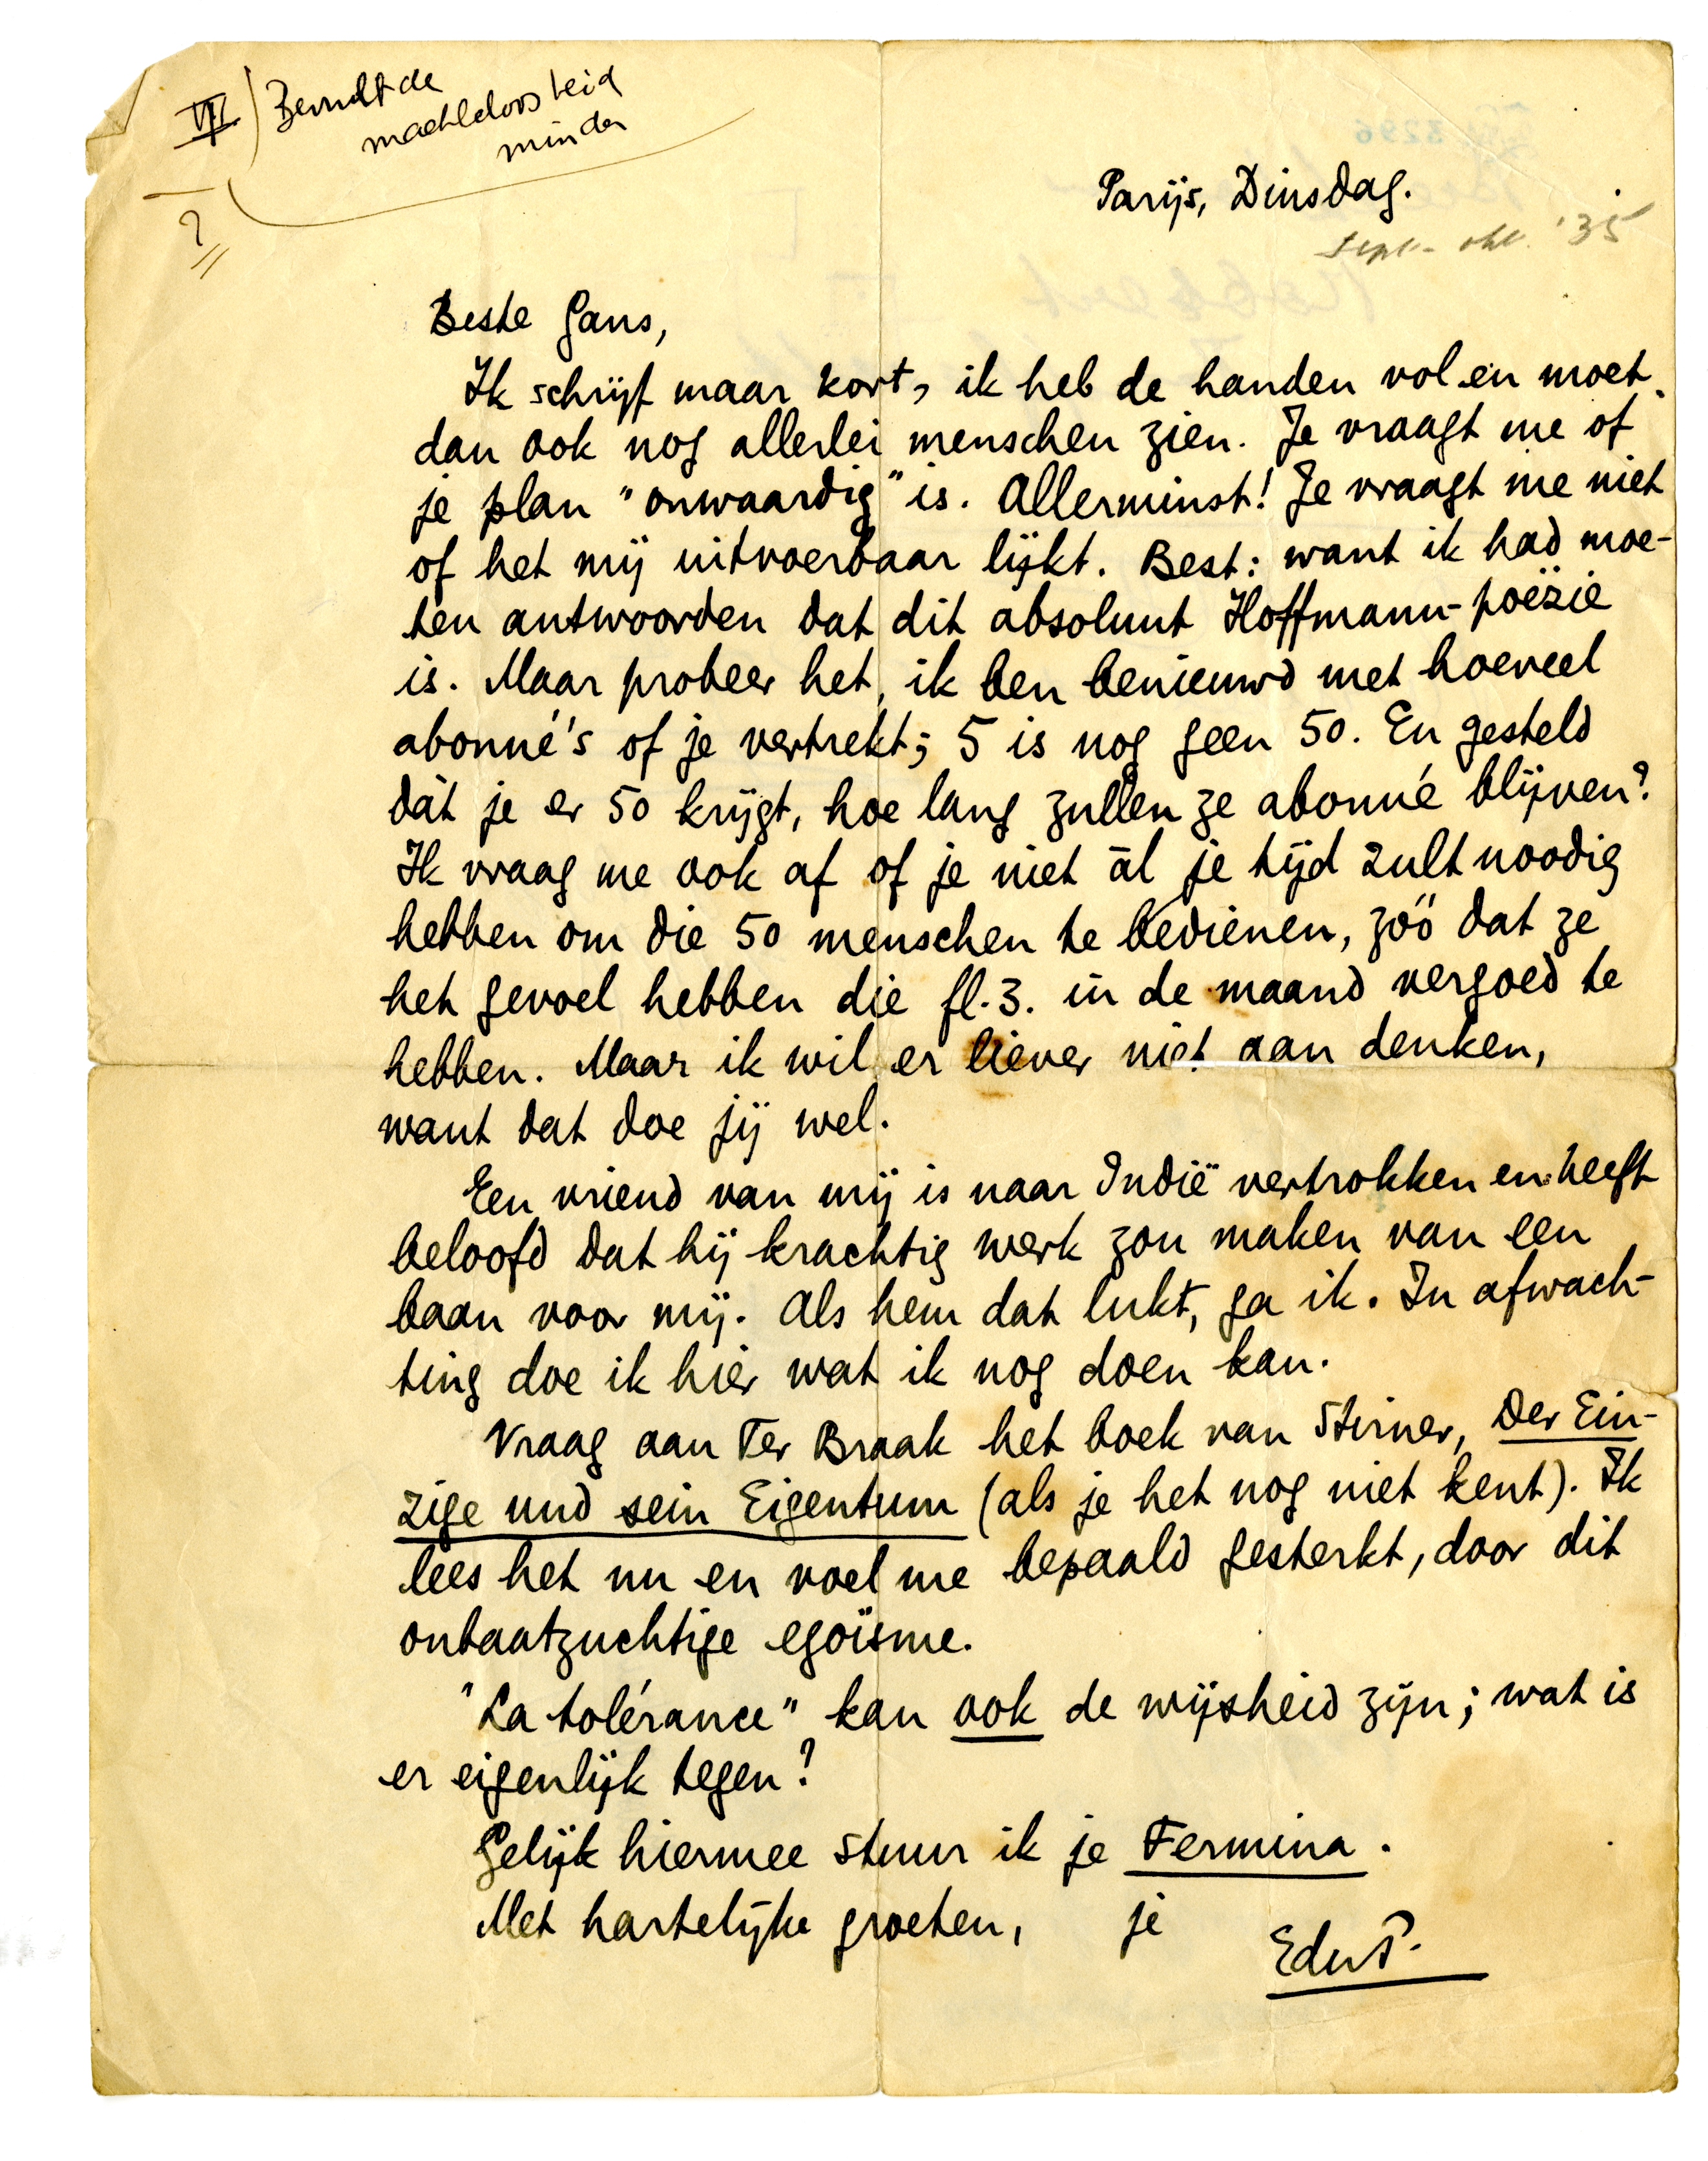 VII
de
machteloosheid
minder
?
Parijs, Dinsdag.
Sept.- okt. '35
Beste Gans,
Ik schrijf maar kort, ik heb de handen vol en moet
dan ook nog allerlei menschen zien. Je vraagt me of
je plan "onwaardig" is. Allerminst! Je vraagt me niet
of het mij uitvoerbaar lijkt. Best: want ik had moe-
ten antwoorden dat dit absoluut Hoffmann-poëzie
is. Maar probeer het, ik ben benieuwd met hoeveel
abonné's of je vertrekt; 5 is nog geen 50. En gesteld
dàt je er 50 krijgt, hoe lang zullen ze abonné blijven?
Ik vraag me ook af of je niet àl je tijd zult noodig
hebben om die 50 menschen te bedienen, zóó dat ze
het gevoel hebben die fl.3. in de maand vergoed te
hebben. Maar ik wil er liever niet aan denken,
want dat doe jij wel.
Een vriend van mij is naar Indië vertrokken en heeft
beloofd dat hij krachtig werk zou maken van een
baan voor mij. Als hem dat lukt, ga ik. In afwach-
ting doe ik hier wat ik nog doen kan.
Vraag aan Ter Braak het boek van Stirner, Der Ein-
zige und sein Eigentum (als je het nog niet kent). Ik
lees het nu en voel me bepaald gesterkt, door dit
onbaatzuchtige egoïsme.
"La tolérance" kan ook de wijsheid zijn; wat is
er eigenlijk tegen?
Gelijk hiermee stuur ik je Fermina.
Met hartelijke groeten, je
EduP.